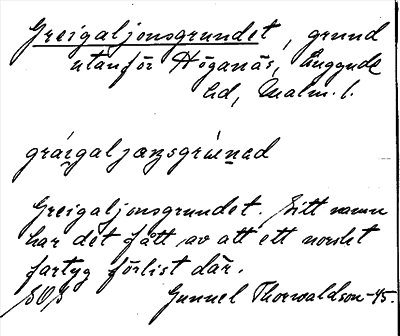 Greigaljonsgrundet, grund
utanför Höganäs, Luggude
hd, Malm. l.
gráigaljonsgrùnnad
Greigaljonsgrundet. Sitt namn
har det fått av att ett norskt
fartyg förlist där.
Gunnel Thorwaldson -45.